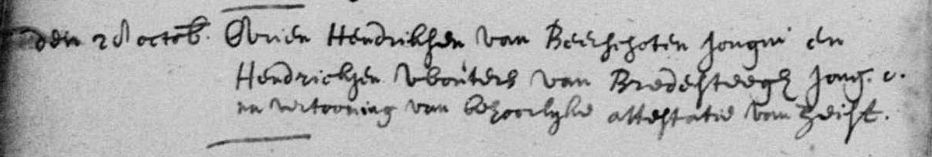 den 28 octob. Gorien Hendriksen van Beerschoten jongm en
Hendricksen Wouters van Bredesteegh jong. d.
na vertooning van behoorlyke attestatie van Zeist.